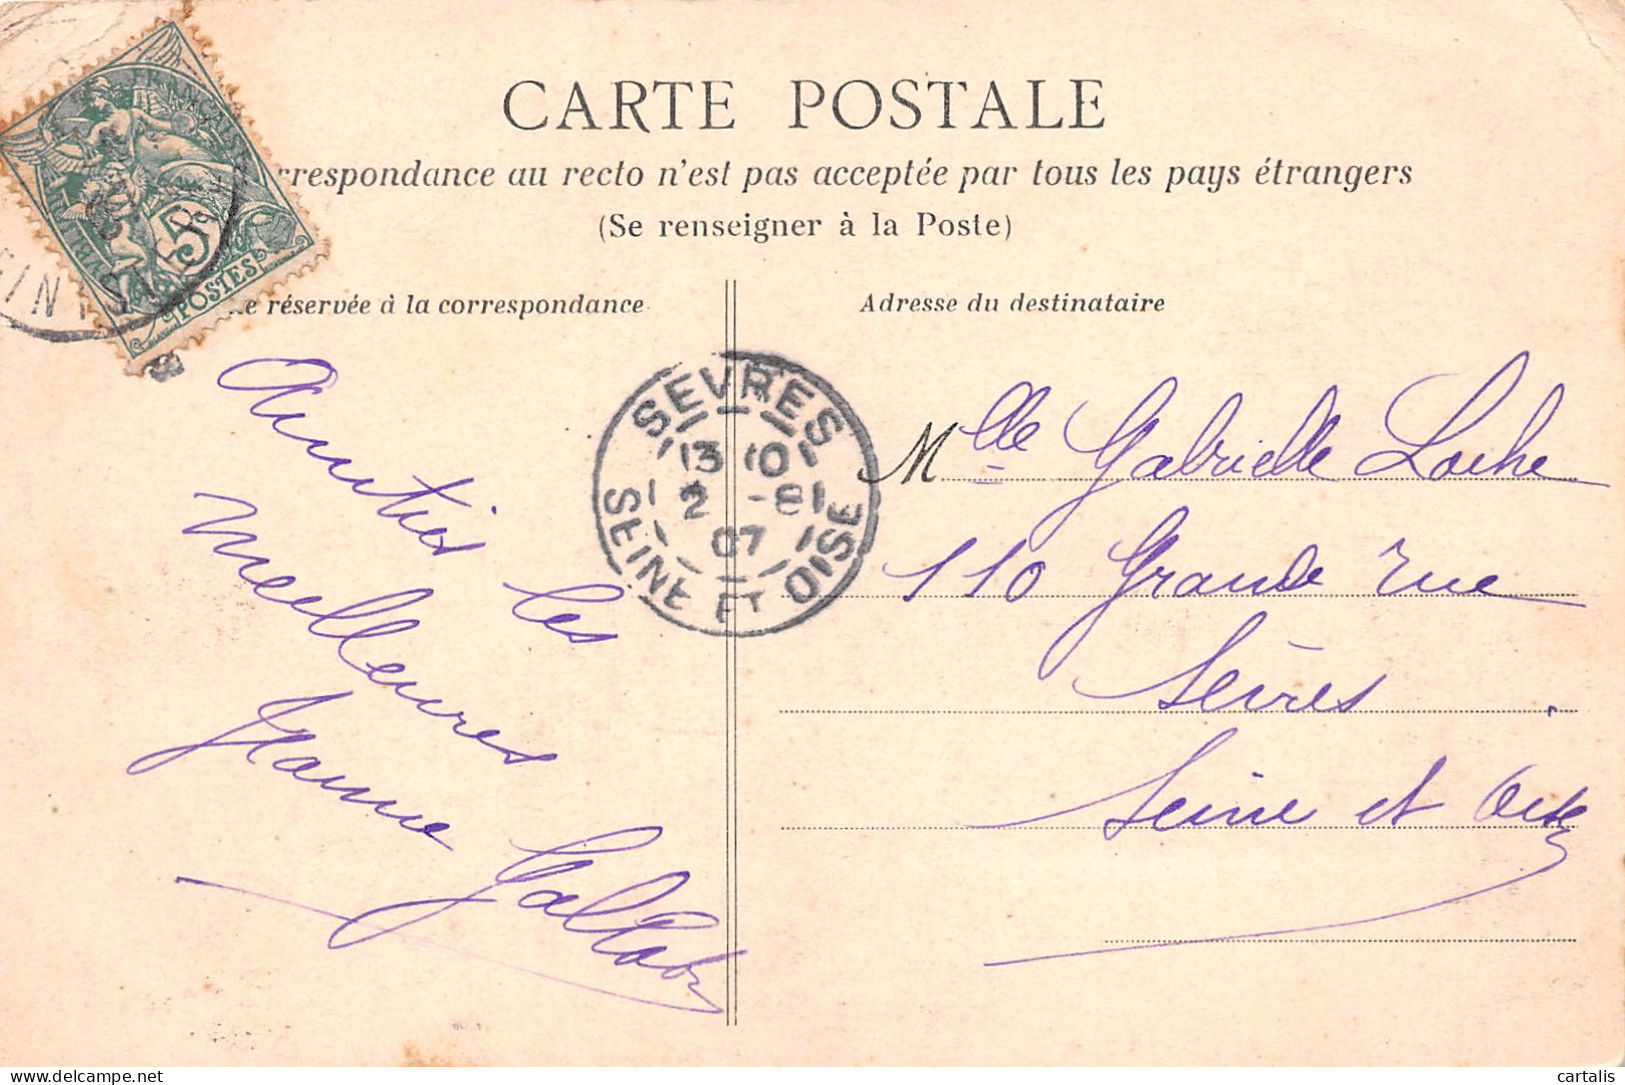 CARTE POSTALE
rrespondance au recto n'est pas acceptée par tous les pays étrangers
(Se renseigner à la Poste)
réservée à la correspondance
Adresse du destinataire
RÉPUBLIQUE FRANÇAISE
5
POSTES
SEVRES
13 10
2 -8
07
SEINE ET OISE
Amitiés les
meilleures
Jeanne
Mlle Gabrielle Loche
110 Grande rue
Sèvres.
Seine et Oise
cartalis